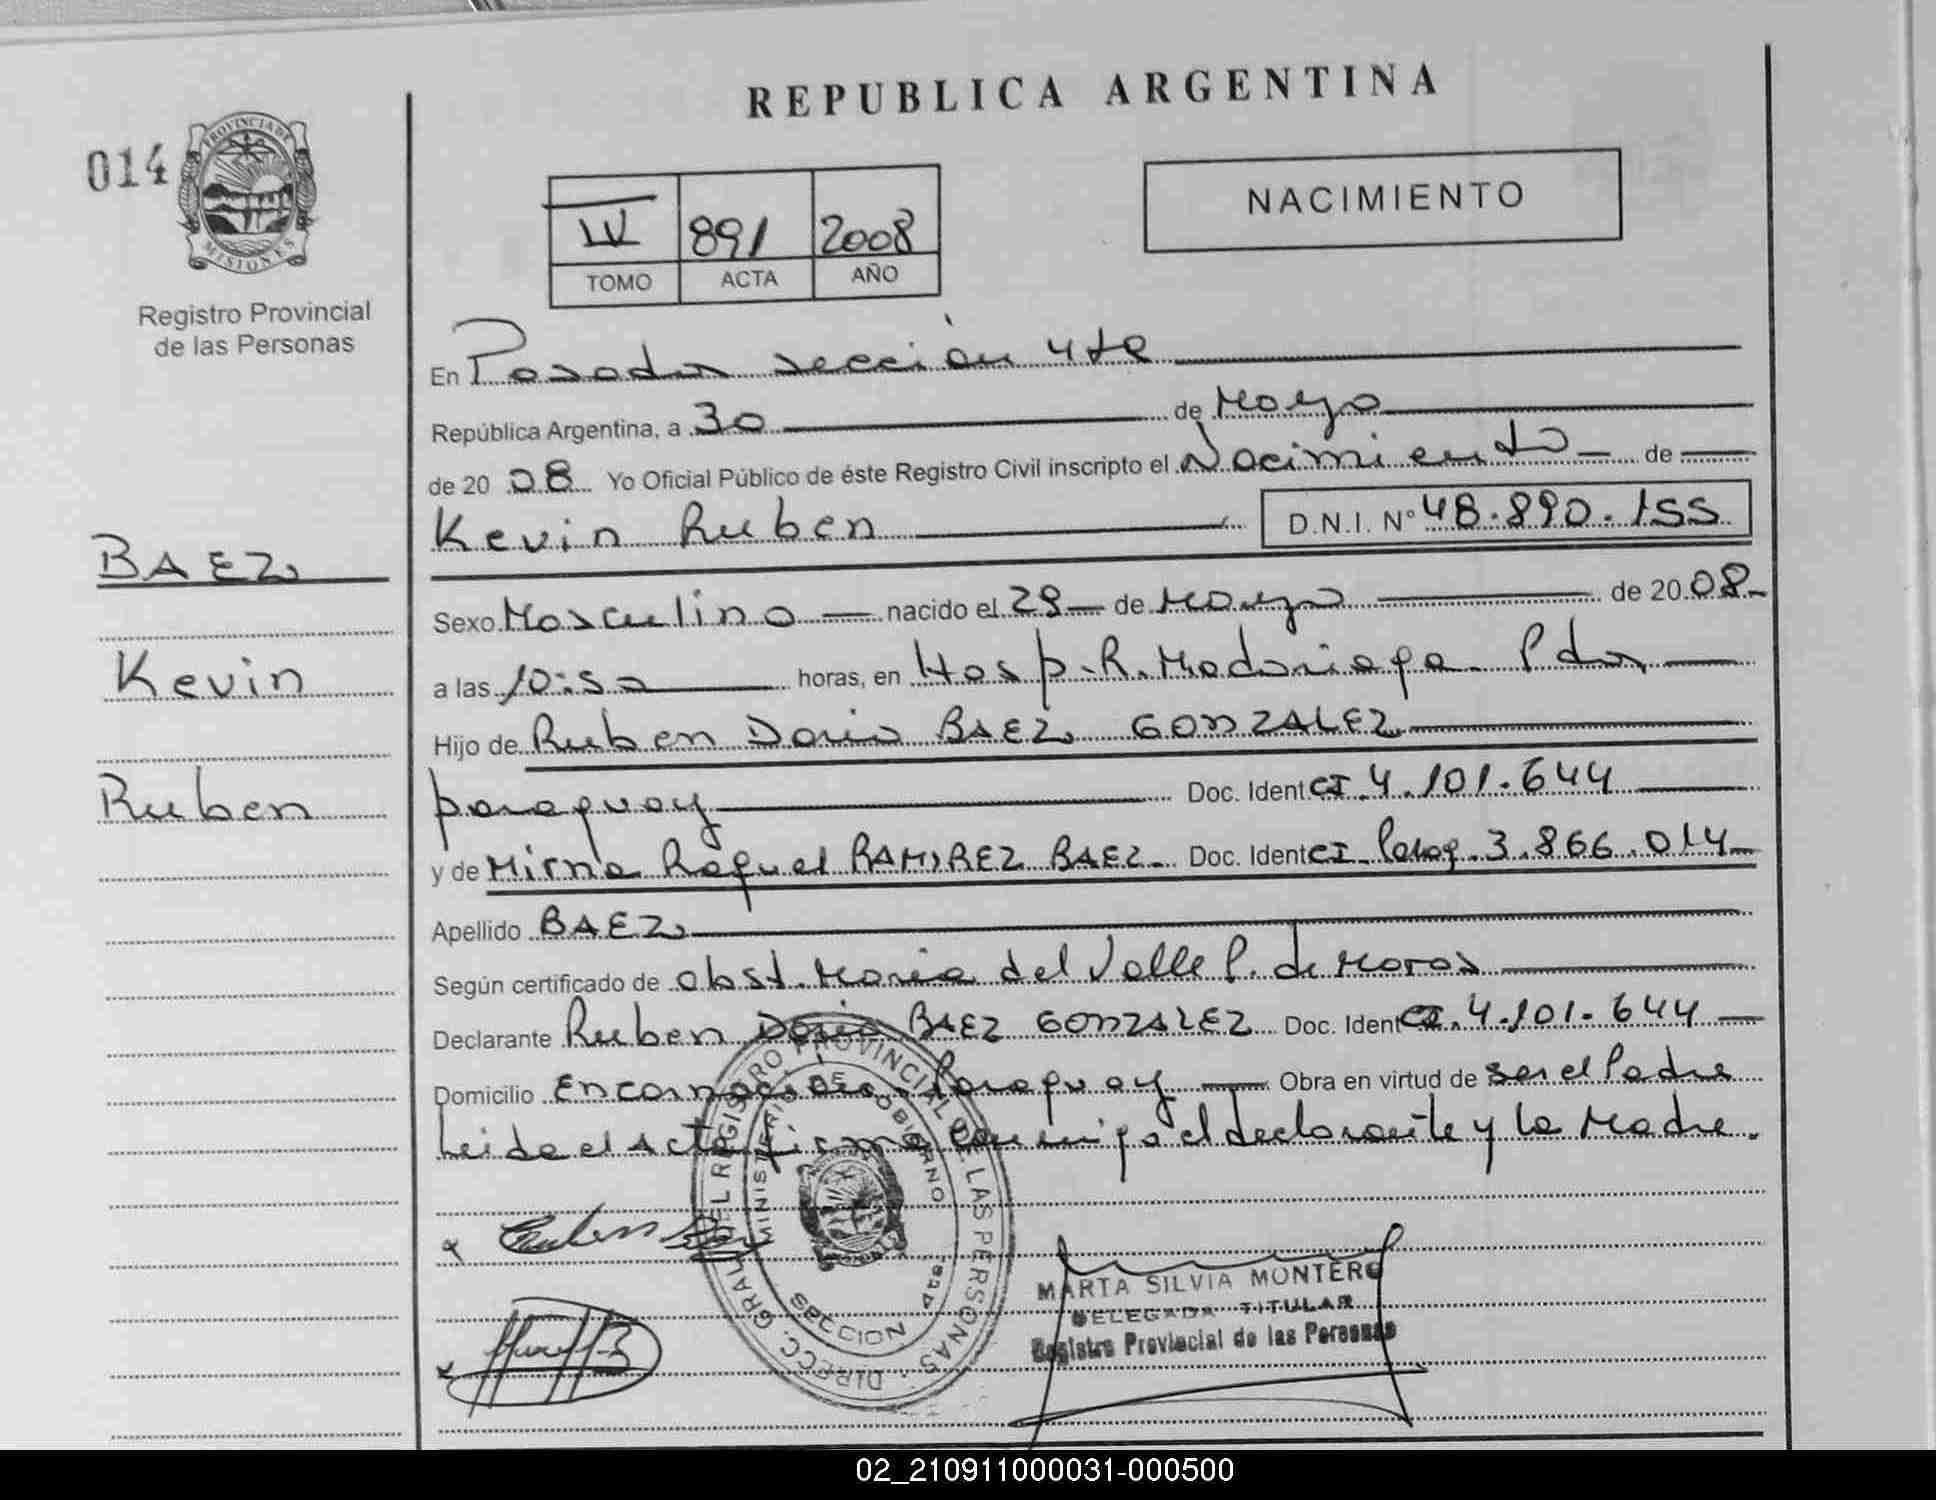 REPUBLICA ARGENTINA
014
PROVINCIA DE
MISIONES
Registro Provincial
de las Personas
IV 891 2008
TOMO ACTA AÑO
NACIMIENTO
En Posadas sección 4ta
República Argentina, a 30 de Mayo
de 2008 Yo Oficial Público de éste Registro Civil inscripto el Nacimiento de
Kevin Ruben D.N.I. Nº 48.890.155
BAEZ
Kevin
Ruben
Sexo Masculino nacido el 29 de Mayo de 2008
a las 10:50 horas, en Hosp. R. Madariaga Pdas
Hijo de Ruben Dario BAEZ GONZALEZ
paraguay Doc. Ident CI 4.101.644
y de Mirna Raquel RAMIREZ BAEZ Doc. Ident CI Parag. 3.866.014
Apellido BAEZ
Según certificado de obst. Maria del Valle P. de Moras
Declarante Ruben Dario BAEZ GONZALEZ Doc. Ident CI. 4.101.644
Domicilio Encarnación Paraguay Obra en virtud de ser el Padre
Leida el acta firma conmigo el declarante y la Madre.
DIRECC. GRAL. DEL REGISTRO PROVINCIAL DE LAS PERSONAS
MINISTERIO DE GOBIERNO
SECCION 4ta.
MARTA SILVIA MONTERO
DELEGADA TITULAR
Registro Provincial de las Personas
02_210911000031-000500